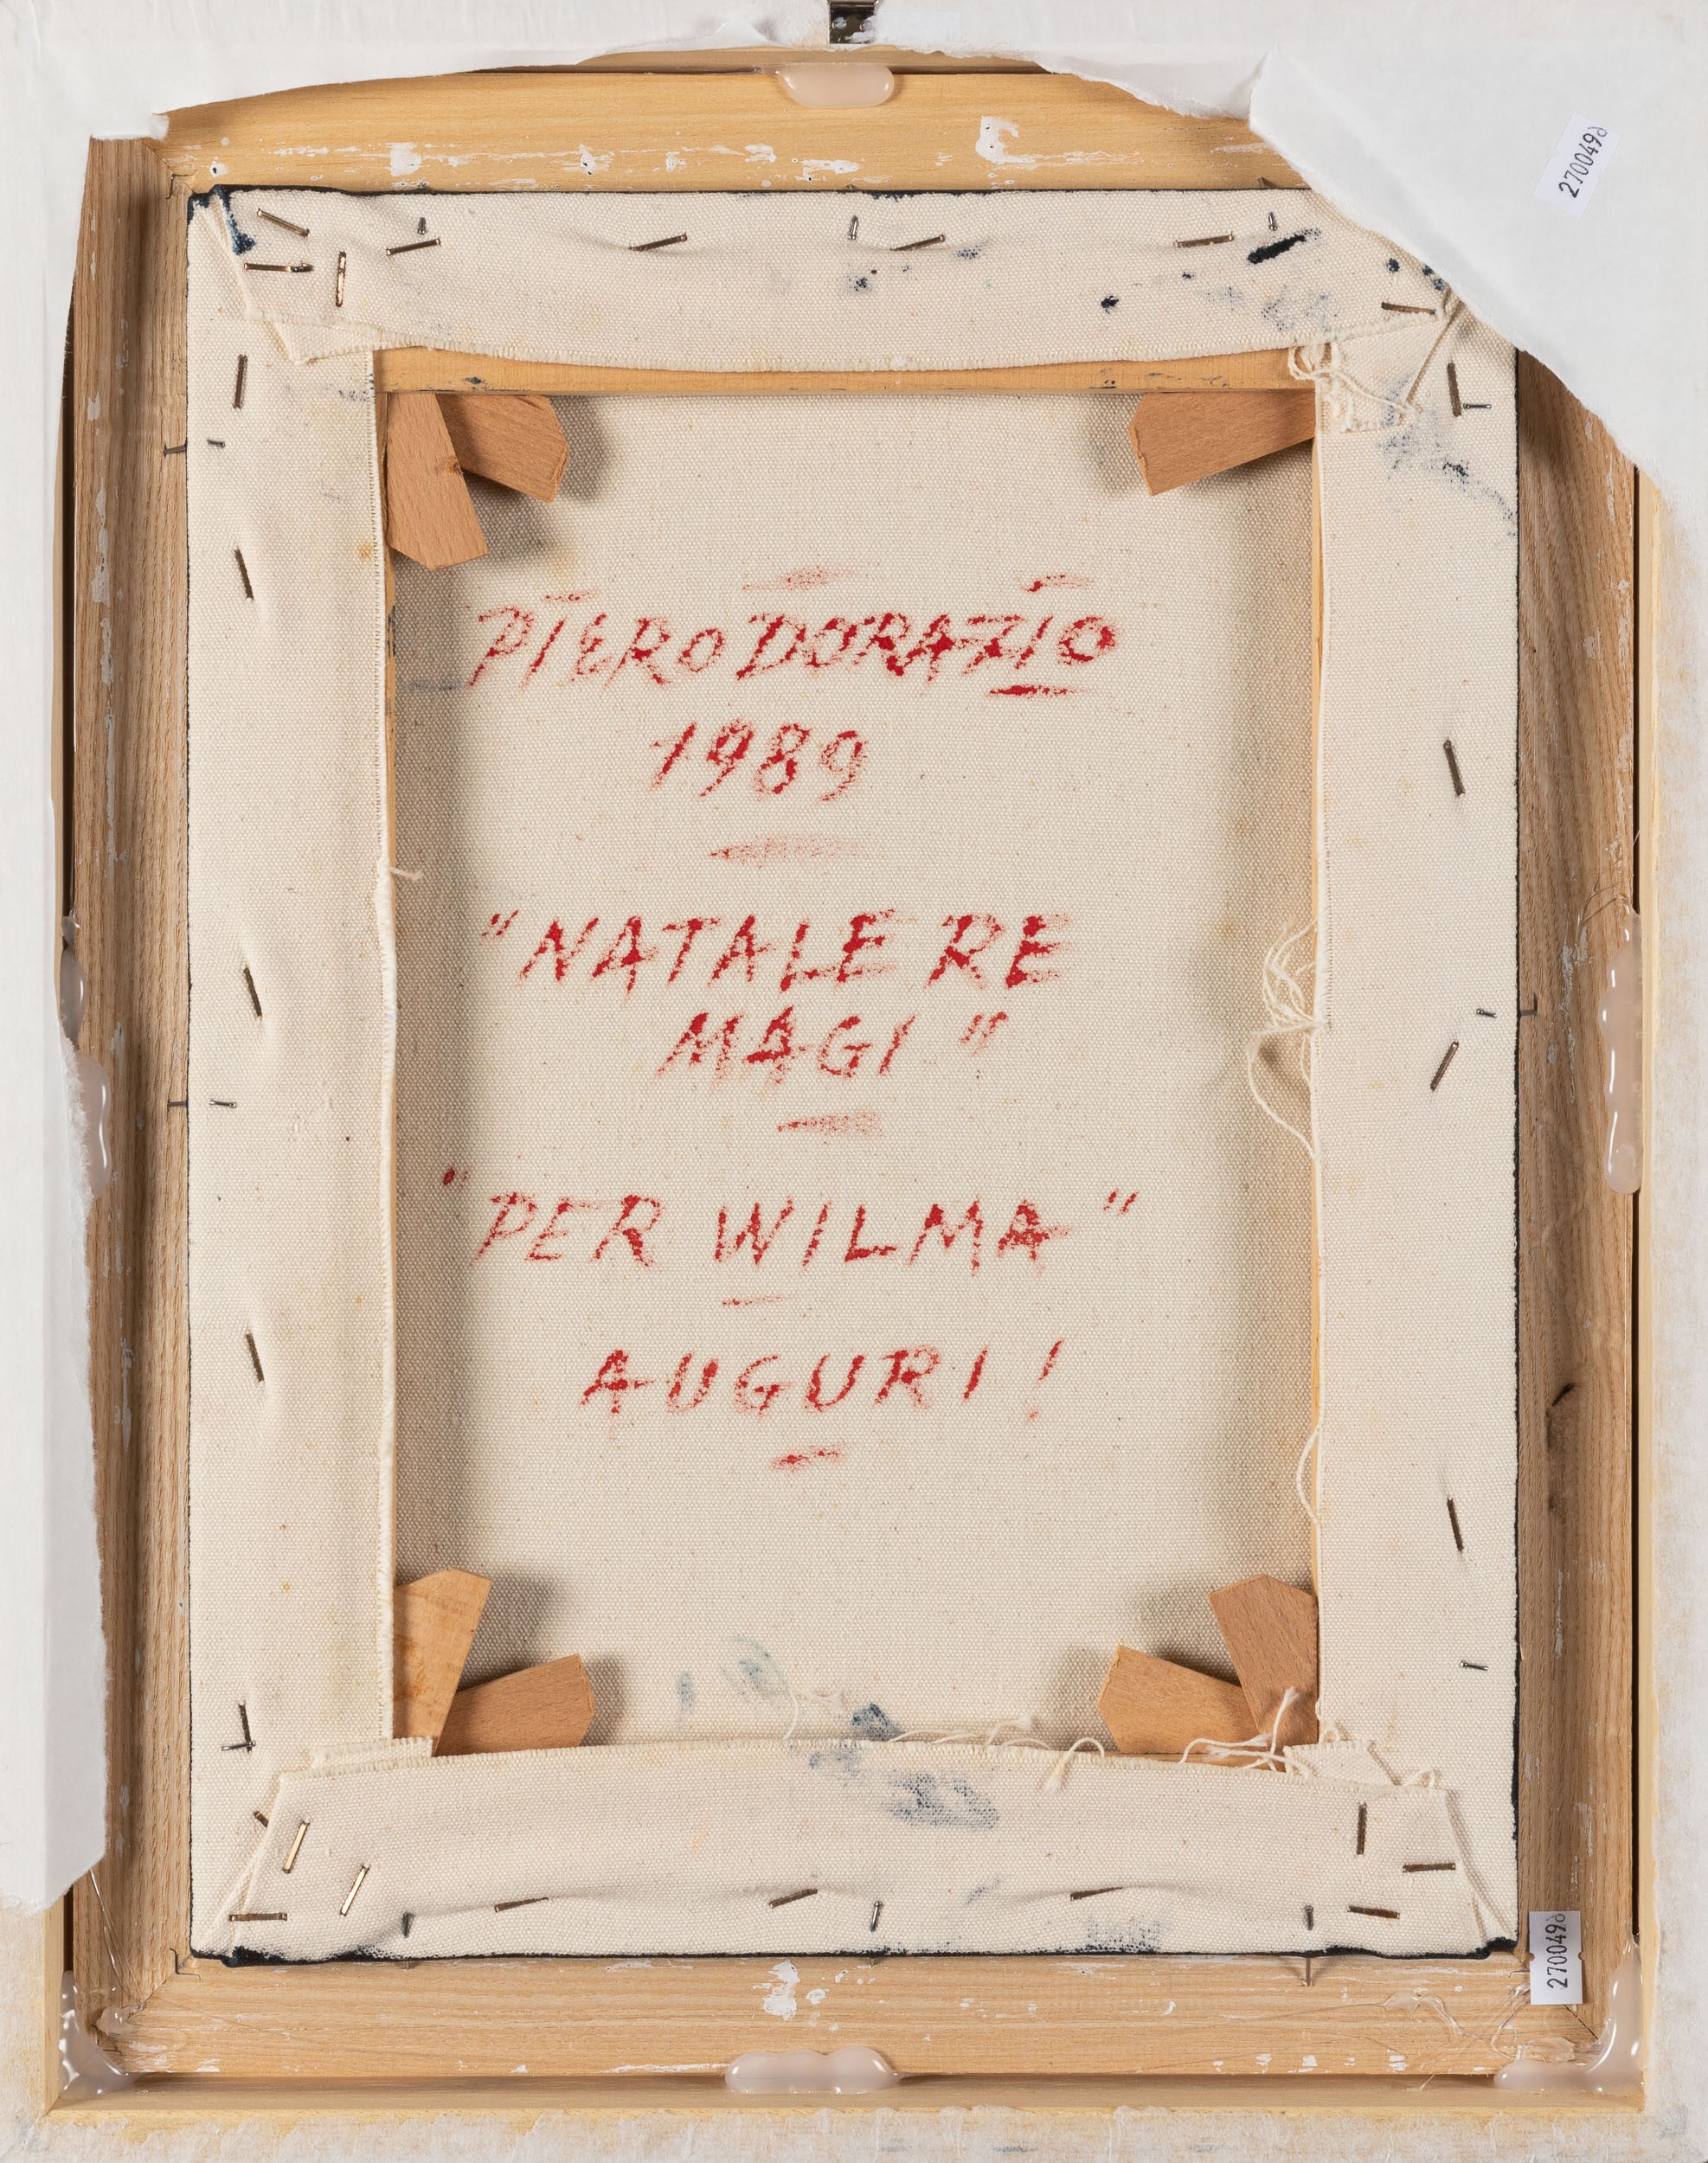 PIERO DORAZIO
1989
"NATALE RE
MAGI"
"PER WILMA"
AUGURI!